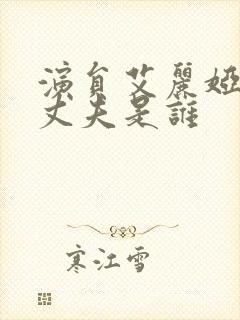 演員艾麗婭
丈夫是誰
寒江雪